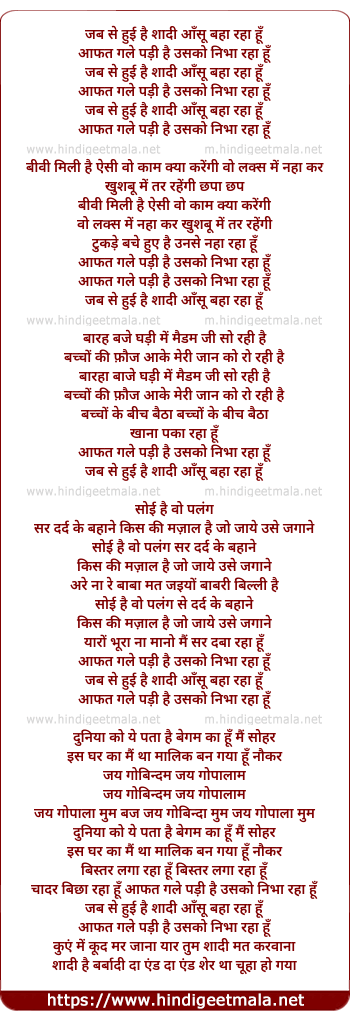 जब से हुई है शादी आँसू बहा रहा हूँ
आफत गले पड़ी है उसको निभा रहा हूँ
जब से हुई है शादी आँसू बहा रहा हूँ
आफत गले पड़ी है उसको निभा रहा हूँ
जब से हुई है शादी आँसू बहा रहा हूँ
आफत गले पड़ी है उसको निभा रहा हूँ
www.hindigeetmala.net m.hindigeetmala.net
बीवी मिली है ऐसी वो काम क्या करेंगी वो लक्स में नहा कर
खुशबू में तर रहेंगी छपा छप
बीवी मिली है ऐसी वो काम क्या करेंगी
वो लक्स में नहा कर खुशबू में तर रहेंगी
टुकड़े बचे हुए है उनसे नहा रहा हूँ
आफत गले पड़ी है उसको निभा रहा हूँ
आफत गले पड़ी है उसको निभा रहा हूँ
जब से हुई है शादी आँसू बहा रहा हूँ
www.hindigeetmala.net m.hindigeetmala.net
बारह बजे घड़ी में मैडम जी सो रही है
बच्चों की फ़ौज आके मेरी जान को रो रही है
बारहा बाजे घड़ी में मैडम जी सो रही है
बच्चों की फ़ौज आके मेरी जान को रो रही है
बच्चों के बीच बैठा बच्चों के बीच बैठा
खाना पका रहा हूँ
आफत गले पड़ी है उसको निभा रहा हूँ
जब से हुई है शादी आँसू बहा रहा हूँ
www.hindigeetmala.net m.hindigeetmala.net
सोई है वो पलंग
सर दर्द के बहाने किस की मज़ाल है जो जाये उसे जगाने
सोई है वो पलंग सर दर्द के बहाने
किस की मज़ाल है जो जाये उसे जगाने
अरे ना रे बाबा मत जइयों बाबरी बिल्ली है
सोई है वो पलंग से दर्द के बहाने
किस की मज़ाल है जो जाये उसे जगाने
यारों भूरा ना मानो मैं सर दबा रहा हूँ
आफत गले पड़ी है उसको निभा रहा हूँ
जब से हुई है शादी आँसू बहा रहा हूँ
आफत गले पड़ी है उसको निभा रहा हूँ
www.hindigeetmala.net m.hindigeetmala.net
दुनिया को ये पता है बेगम का हूँ मैं सोहर
इस घर का मैं था मालिक बन गया हूँ नौकर
जय गोबिन्दम जय गोपालाम
जय गोबिन्दम जय गोपालाम
जय गोपाला मुम बज जय गोबिन्दा मुम जय गोपाला मुम
दुनिया को ये पता है बेगम का हूँ मैं सोहर
इस घर का मैं था मालिक बन गया हूँ नौकर
बिस्तर लगा रहा हूँ बिस्तर लगा रहा हूँ
चादर बिछा रहा हूँ आफत गले पड़ी है उसको निभा रहा हूँ
जब से हुई है शादी आँसू बहा रहा हूँ
आफत गले पड़ी है उसको निभा रहा हूँ
कुएं में कूद मर जाना यार तुम शादी मत करवाना
शादी है बर्बादी दा एंड दा एंड शेर था चूहा हो गया
https://www.hindigeetmala.net